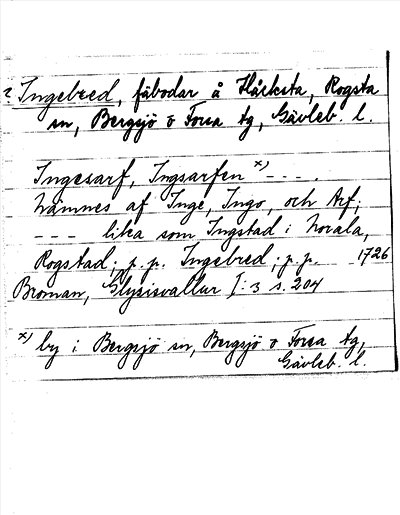 ? Ingebred, fäbodar å Hårksta, Rogsta
sn, Bergsjö o Forsa tg, Gävleb. l.
Ingesarf, Ingsarfen x) - - - .
nämnes af Inge, Ingo, och Arf;
- - - lika som Ingstad i Norala,
Rogstad; p. p. Ingebred; p. p. 1726
Broman, Glysisvallur I:3 s. 204
x) by i Bergsjö sn, Bergsjö o Forsa tg,
Gävleb. l.